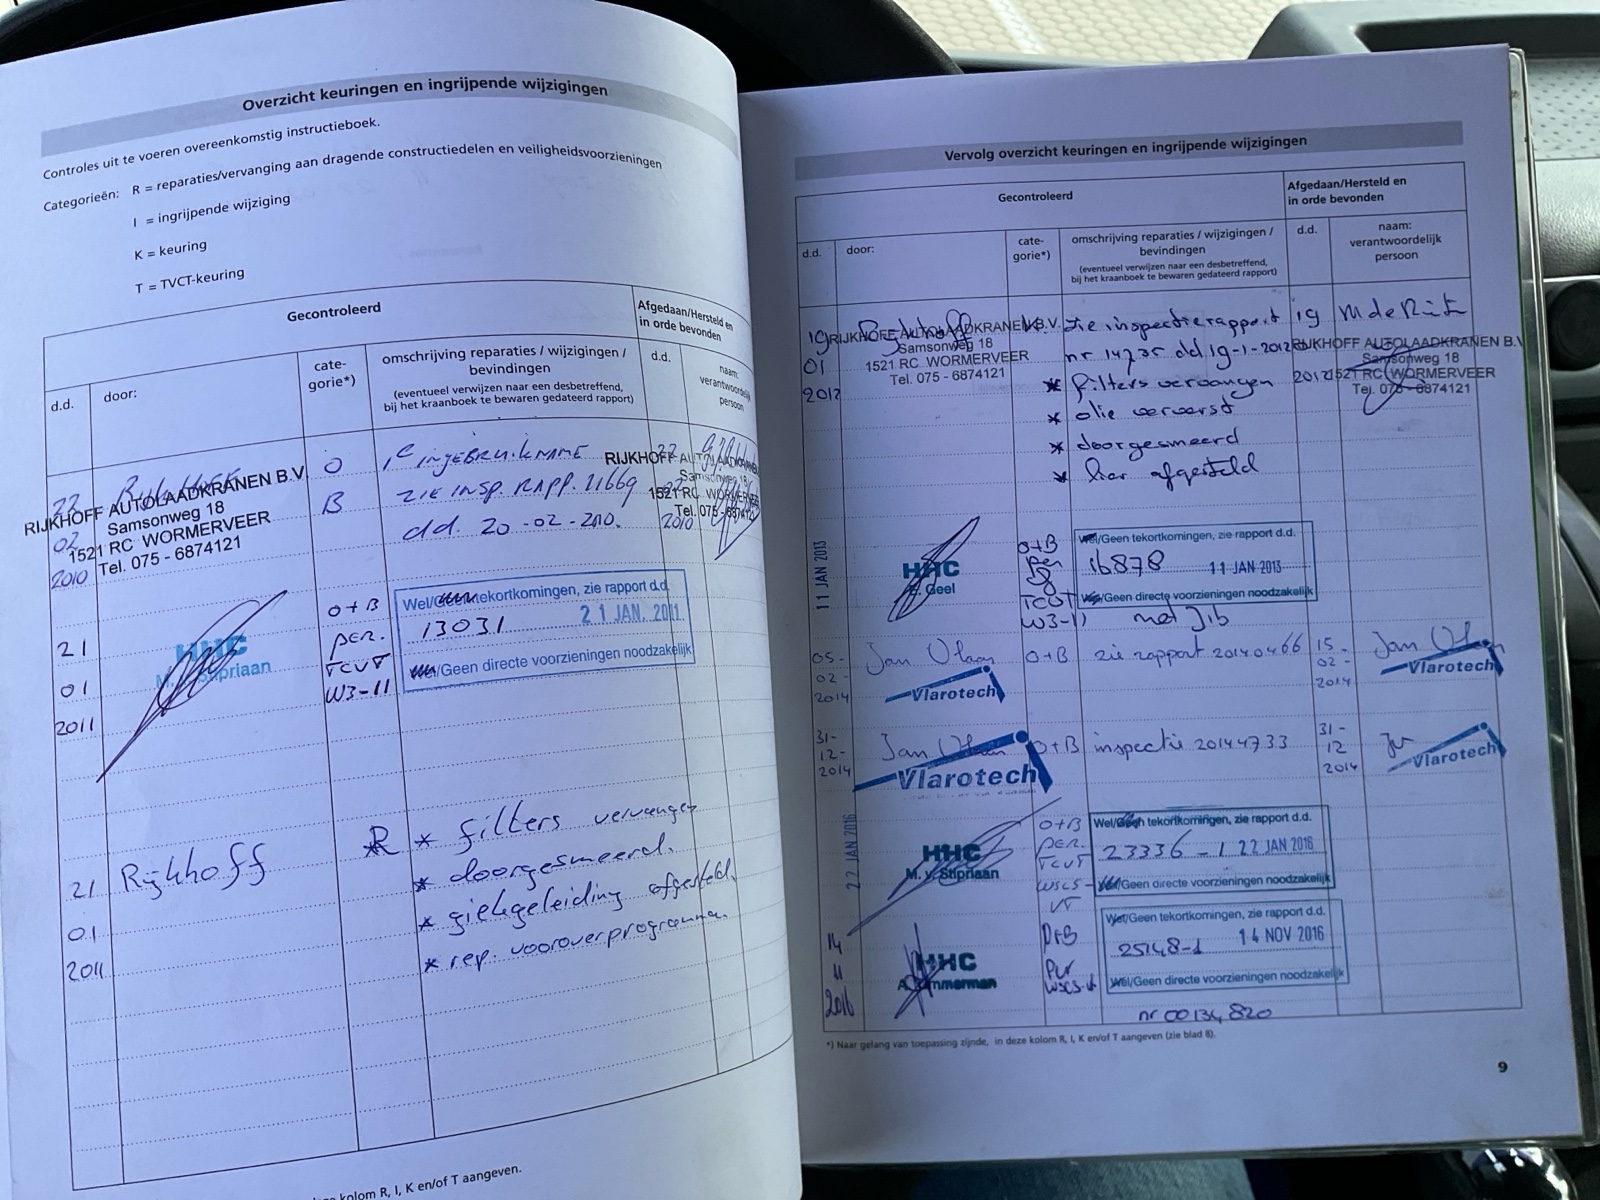 Overzicht keuringen en ingrijpende wijzigingen
Controles uit te voeren overeenkomstig instructieboek.
Categorieën: R = reparaties/vervanging aan dragende constructiedelen en veiligheidsvoorzieningen
I = ingrijpende wijziging
K = keuring
T = TVCT-keuring
Gecontroleerd
Afgedaan/Hersteld en
in orde bevonden
d.d.
door:
cate-
gorie*)
omschrijving reparaties / wijzigingen /
bevindingen
(eventueel verwijzen naar een desbetreffend,
bij het kraanboek te bewaren gedateerd rapport)
d.d.
naam:
verantwoordelijk
persoon
22
02
2010
Rijkhoff
RIJKHOFF AUTOLAADKRANEN B.V.
Samsonweg 18
1521 RC WORMERVEER
Tel. 075 - 6874121
O
B
1e INGEBRUIKNAME
ZIE INSP. RAPP. 21669
dd. 20-02-2010.
22
2010
RIJKHOFF AUTOLAADKRANEN
Samsonweg 18
1521 RC WORMERVEER
Tel. 075 - 6874121
21
01
2011
HHC
M. v. Stipriaan
O+B
PER.
TCVT
W3-11
Wel/Geen tekortkomingen, zie rapport d.d.
13031 21 JAN. 2011
Wel/Geen directe voorzieningen noodzakelijk
21
01
2011
Rijkhoff
R
* filters vervangen
* doorgesmeerd.
* giekgeleiding afgesteld.
* rep. vooroverprogramma.
deze kolom R, I, K en/of T aangeven.
Vervolg overzicht keuringen en ingrijpende wijzigingen
Gecontroleerd
Afgedaan/Hersteld en
in orde bevonden
d.d.
door:
cate-
gorie*)
omschrijving reparaties / wijzigingen /
bevindingen
(eventueel verwijzen naar een desbetreffend,
bij het kraanboek te bewaren gedateerd rapport)
d.d.
naam:
verantwoordelijk
persoon
19
01
2012
Rijkhoff
RIJKHOFF AUTOLAADKRANEN B.V.
Samsonweg 18
1521 RC WORMERVEER
Tel. 075 - 6874121
zie inspectierapport
nr 14735 dd 19-1-2012
* filters vervangen
* olie ververst
* doorgesmeerd
* lier afgesteld
19
2012
M de Ruit
RIJKHOFF AUTOLAADKRANEN B.V.
Samsonweg 18
1521 RC WORMERVEER
Tel. 075 - 6874121
11 JAN 2013
HHC
E. Geel
O+B
Per
TCVT
W3-11
Wel/Geen tekortkomingen, zie rapport d.d.
16878 11 JAN 2013
Wel/Geen directe voorzieningen noodzakelijk
met Jib
05-
02-
2014
Jan Olaan
Vlarotech
O+B
zie rapport 20140466
15-
02-
2014
Jan Olaan
Vlarotech
31-
12-
2014
Jan Olaan
Vlarotech
O+B
inspectie 20144733
31-
12
2014
Vlarotech
22 JAN 2016
HHC
M. v. Stipriaan
O+B
PER.
TCVT
WSCS-
VT
Wel/Geen tekortkomingen, zie rapport d.d.
23336-1 22 JAN 2016
Wel/Geen directe voorzieningen noodzakelijk
14
11
2016
HHC
A. Zimmerman
O+B
Per
WSCS-vt
Wel/Geen tekortkomingen, zie rapport d.d.
25148-1 14 NOV 2016
Wel/Geen directe voorzieningen noodzakelijk
nr 00134820
*) Naar gelang van toepassing zijnde, in deze kolom R, I, K en/of T aangeven (zie blad 8).
9